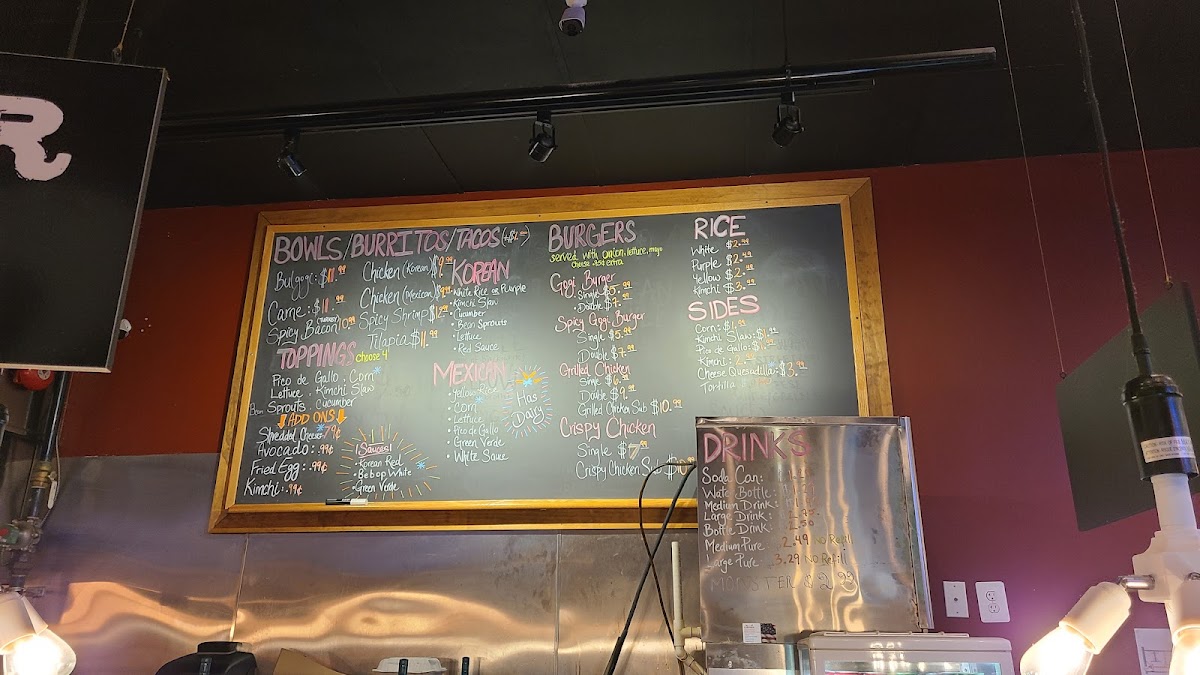 R
BOWLS/BURRITOS/TACOS
Bulgogi: $11.99
Carne: $11.99
Spicy Bacon
Chicken (Korean)
Chicken (Mexican)
Spicy Shrimp
Tilapia $11.99
TOPPINGS choose 4
Pico de Gallo, Corn*
Lettuce, Kimchi Slaw
Bean Sprouts, Cucumber
ADD ONS
Shredded Cheese* 79¢
Avocado: .99¢
Fried Egg: .99¢
Kimchi: .99¢
Sauces!
• Korean Red
• Bebop White*
• Green Verde
KOREAN
• White Rice or Purple
• Kimchi Slaw
• Cucumber
• Bean Sprouts
• Lettuce
• Red Sauce
MEXICAN
• Yellow Rice
• Corn*
• Lettuce
• Pico de Gallo
• Green Verde
• White Sauce
* Has Dairy
BURGERS
served with onion, lettuce, mayo
cheese .75¢ extra
Gogi Burger
Single $5.99
Double $7.99
Spicy Gogi Burger
Single $5.99
Double $7.99
Grilled Chicken
Single $6.99
Double $9.99
Grilled Chicken Sub $10.99
Crispy Chicken
Single $7.99
Crispy Chicken Sub
RICE
White $2.49
Purple $2.49
Yellow $2.49
Kimchi $3.99
SIDES
Corn: $1.99
Kimchi Slaw: $1.99
Pico de Gallo: $1.99
Kimchi:
Cheese Quesadilla* $3.99
Tortilla
DRINKS
Soda Can:
Water Bottle:
Medium Drink:
Large Drink:
Bottle Drink: 2.50
Medium Pure 2.49 NO Refill
Large Pure 3.29 NO Refill
MONSTER $2.99